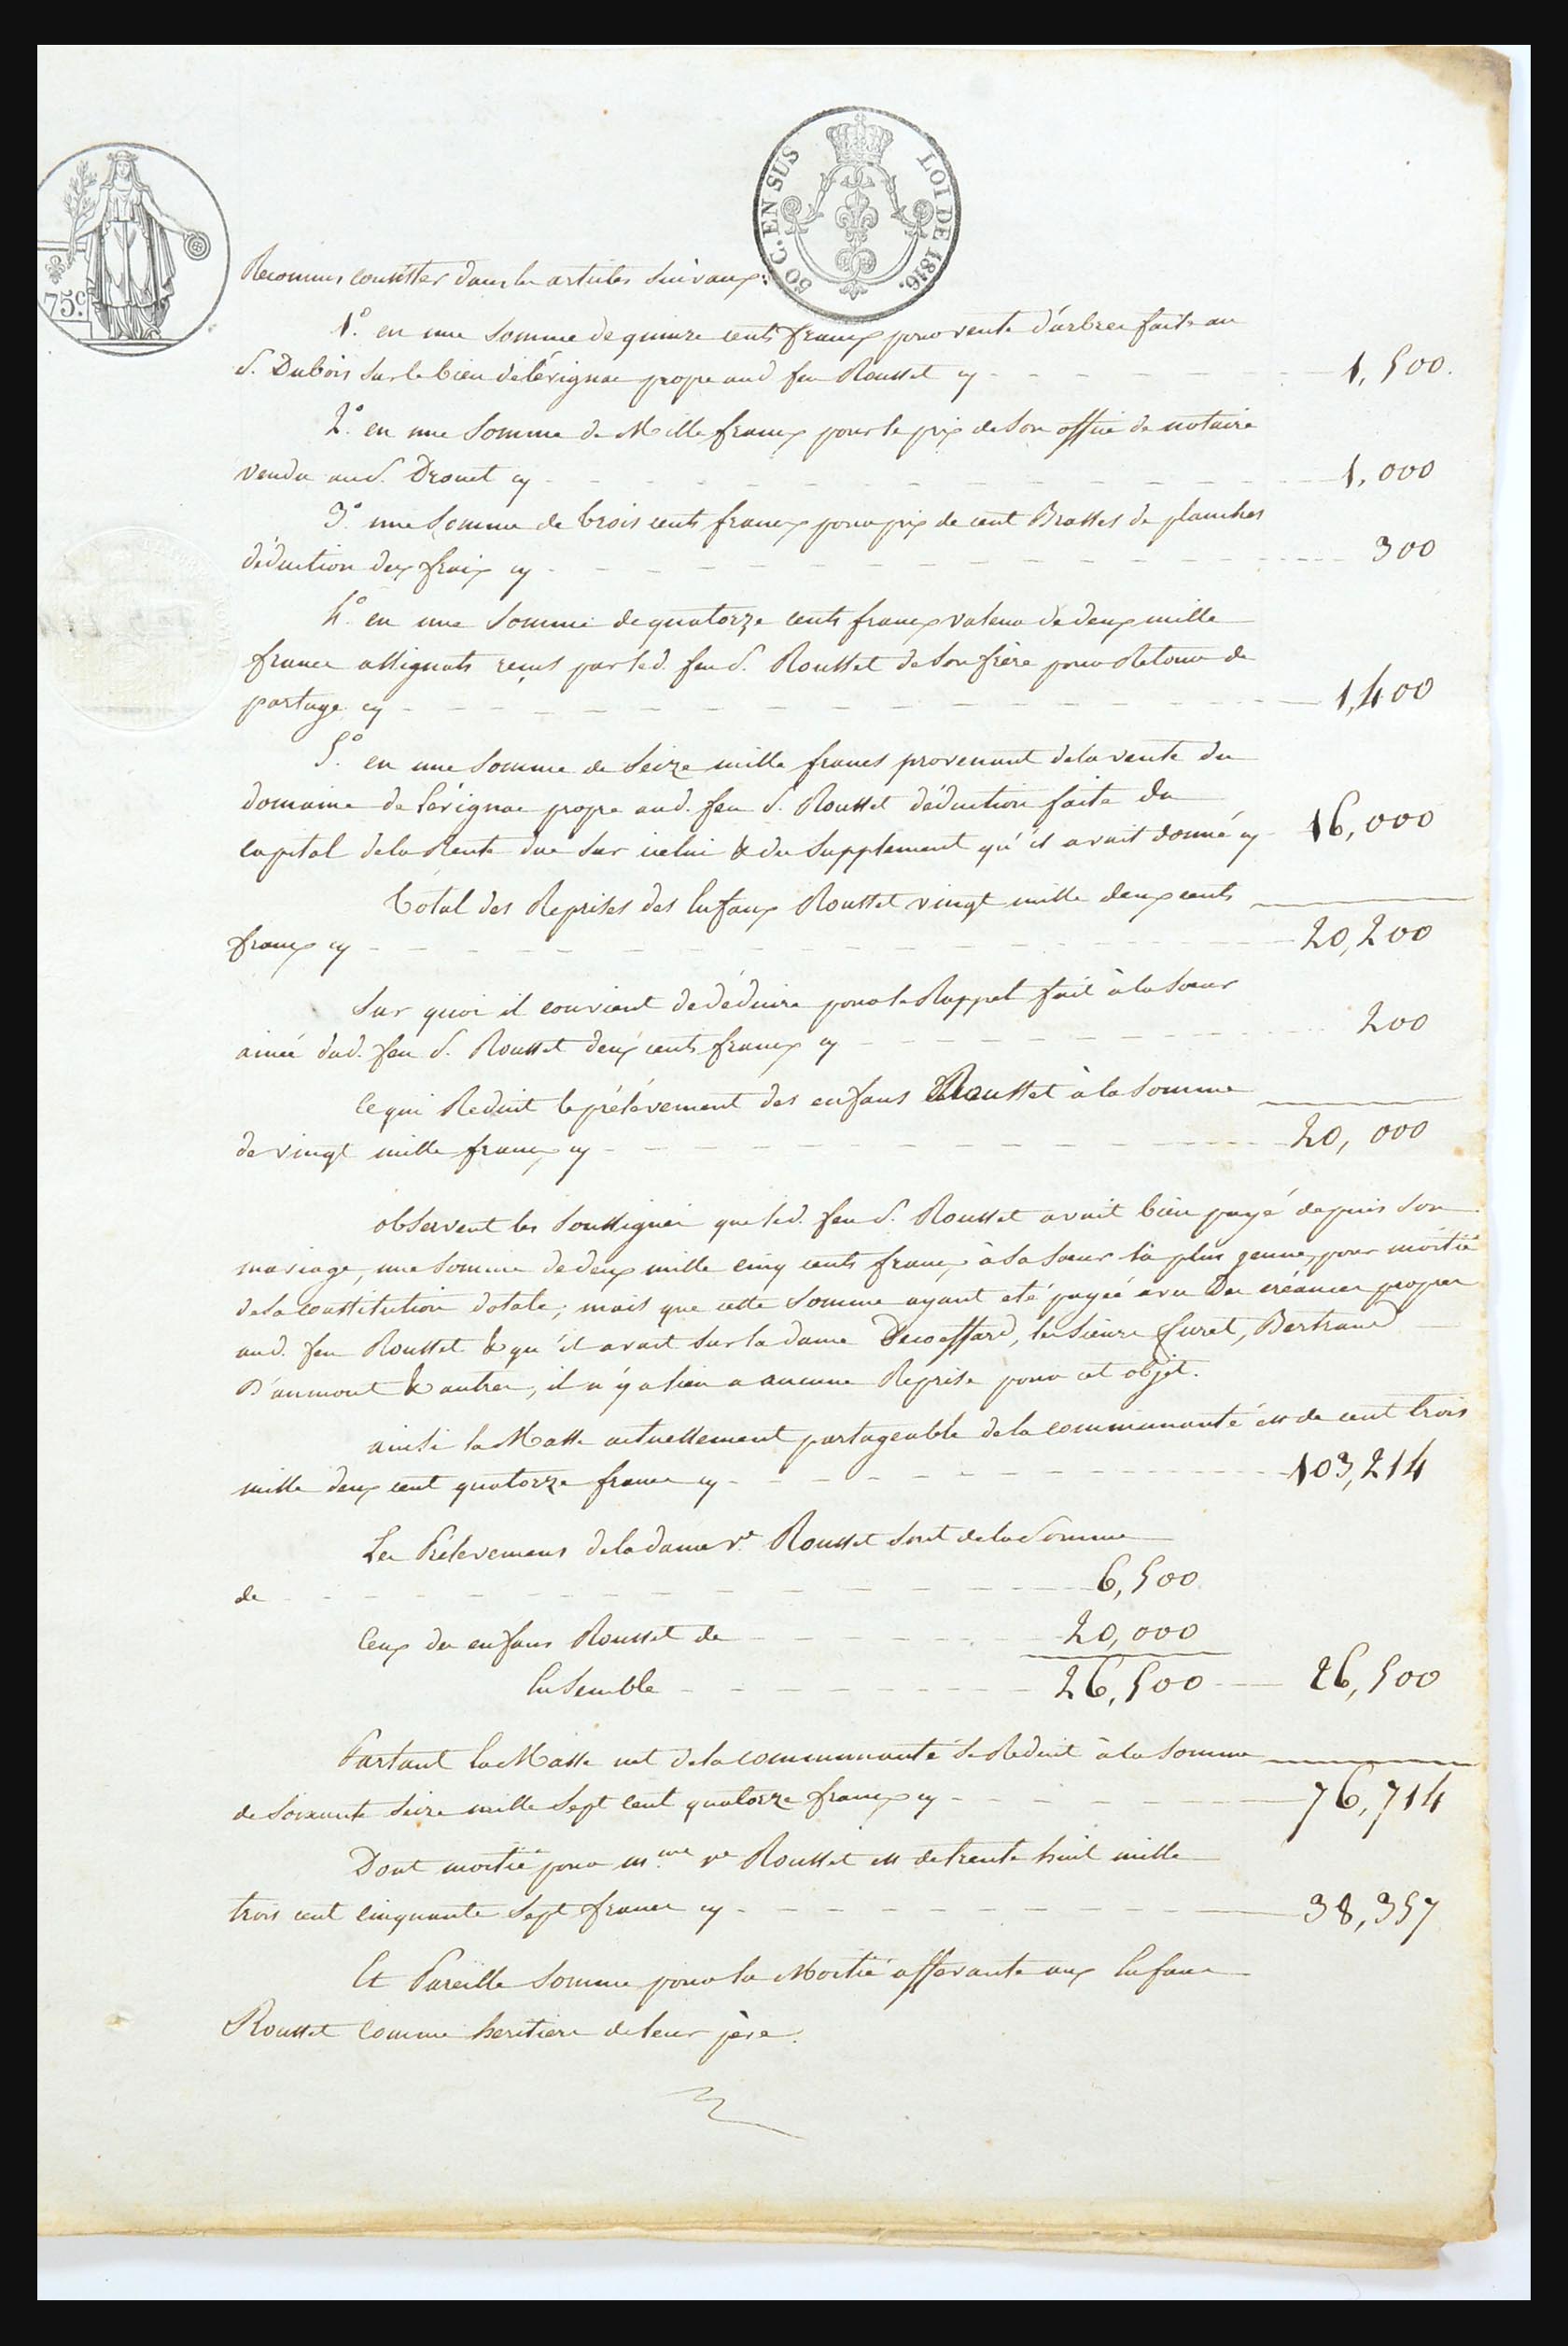 50 C. EN SUS
LOI DE 1816.
75 c.
Reconnus consister dans les articles suivans:
1.° en une somme de quinze cents francs pour vente d'arbres faite au
S. Dubois sur le bien de Lérignac propre aud. feu Rousset cy 1,500.
2.° en une somme de Mille francs pour le prix de son office de notaire
vendu au S. Drouet cy 1,000
3.° une somme de trois cents francs pour prix de cent Brasses de planches
déduction des fraix cy 300
4.° en une somme de quatorze cents francs valeur de deux mille
francs assignats reçus par led. feu S. Rousset de son frère pour Retour de
partage cy 1,400
5.° en une somme de seize mille francs provenant de la vente du
domaine de Lérignac propre aud. feu S. Rousset déduction faite du
capital de la Rente due sur icelui & du supplement qu'il avait donné cy 16,000
Total des Reprises des Enfans Rousset vingt mille deux cents
francs cy 20,200
Sur quoi il convient de déduire pour le Rappel fait à la soeur
ainée dud. feu S. Rousset deux cents francs cy 200
Ce qui Reduit le prélévement des enfans Rousset à la somme
de vingt mille francs cy 20,000
observent les soussignés que led. feu S. Rousset avait bien payé depuis son
mariage, une somme de deux mille cinq cents francs à sa soeur la plus jeune, pour moitié
de sa constitution dotale; mais que cette somme ayant été payée avec Des créances propres
aud. feu Rousset & qu'il avait sur la dame , les sieurs Curet, Bertrand
D'aumont & autres, il n'y a lieu a aucune Reprise pour cet objet.
ainsi la Masse actuellement partageable de la communauté est de cent trois
mille deux cent quatorze francs cy 103,214
Les Prélevemens de la dame v.e Rousset sont de la somme
de 6,500
Ceux des enfans Rousset de 20,000
Ensemble 26,500 26,500
Partant la Masse net de la communauté se Reduit à la somme
de soixante seize mille sept cent quatorze francs cy 76,714
Dont moitié pour m.me ve Rousset est de trente huit mille
trois cent cinquante sept francs cy 38,357
Et Pareille somme pour la Moitié afferante aux Enfans
Rousset comme heritiers de leur père.